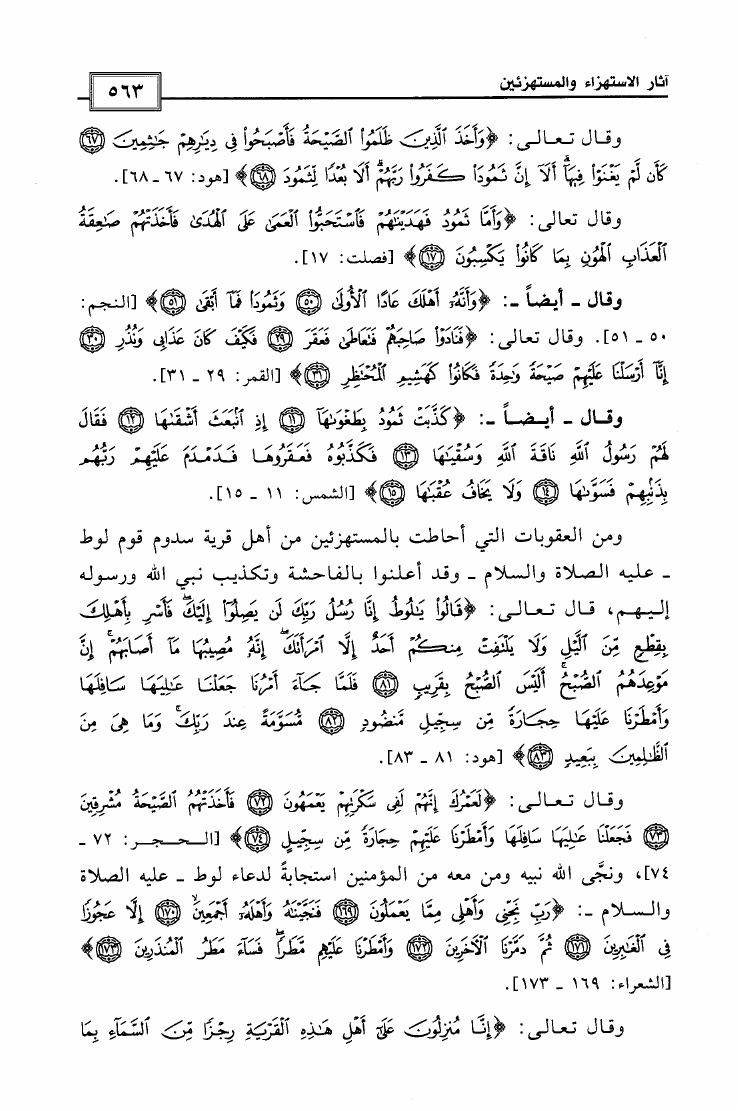 آثار الاستهزاء والمستهزئين
٥٦٣
وقال تعالى: ﴿وَأَخَذَ ٱلَّذِينَ ظَلَمُوا۟ ٱلصَّيْحَةُ فَأَصْبَحُوا۟ فِى دِيَٰرِهِمْ جَٰثِمِينَ ٦٧
كَأَن لَّمْ يَغْنَوْا۟ فِيهَآ ۗ أَلَآ إِنَّ ثَمُودَا۟ كَفَرُوا۟ رَبَّهُمْ ۗ أَلَا بُعْدًا لِّثَمُودَ ٦٨﴾ [هود: ٦٧ - ٦٨].
وقال تعالى: ﴿وَأَمَّا ثَمُودُ فَهَدَيْنَٰهُمْ فَٱسْتَحَبُّوا۟ ٱلْعَمَىٰ عَلَى ٱلْهُدَىٰ فَأَخَذَتْهُمْ صَٰعِقَةُ
ٱلْعَذَابِ ٱلْهُونِ بِمَا كَانُوا۟ يَكْسِبُونَ ١٧﴾ [فصلت: ١٧].
وقال - أيضاً -: ﴿وَأَنَّهُۥٓ أَهْلَكَ عَادًا ٱلْأُولَىٰ ٥٠ وَثَمُودَا۟ فَمَآ أَبْقَىٰ ٥١﴾ [النجم:
٥٠ - ٥١]. وقال تعالى: ﴿فَنَادَوْا۟ صَاحِبَهُمْ فَتَعَاطَىٰ فَعَقَرَ ٢٩ فَكَيْفَ كَانَ عَذَابِى وَنُذُرِ ٣٠
إِنَّآ أَرْسَلْنَا عَلَيْهِمْ صَيْحَةً وَٰحِدَةً فَكَانُوا۟ كَهَشِيمِ ٱلْمُحْتَظِرِ ٣١﴾ [القمر: ٢٩ - ٣١].
وقال - أيضاً -: ﴿كَذَّبَتْ ثَمُودُ بِطَغْوَىٰهَآ ١١ إِذِ ٱنۢبَعَثَ أَشْقَىٰهَا ١٢ فَقَالَ
لَهُمْ رَسُولُ ٱللَّهِ نَاقَةَ ٱللَّهِ وَسُقْيَٰهَا ١٣ فَكَذَّبُوهُ فَعَقَرُوهَا فَدَمْدَمَ عَلَيْهِمْ رَبُّهُم
بِذَنۢبِهِمْ فَسَوَّىٰهَا ١٤ وَلَا يَخَافُ عُقْبَٰهَا ١٥﴾ [الشمس: ١١ - ١٥].
ومن العقوبات التي أحاطت بالمستهزئين من أهل قرية سدوم قوم لوط
- عليه الصلاة والسلام - وقد أعلنوا بالفاحشة وتكذيب نبي الله ورسوله
إليهم، قال تعالى: ﴿قَالُوا۟ يَٰلُوطُ إِنَّا رُسُلُ رَبِّكَ لَن يَصِلُوٓا۟ إِلَيْكَ ۖ فَأَسْرِ بِأَهْلِكَ
بِقِطْعٍ مِّنَ ٱلَّيْلِ وَلَا يَلْتَفِتْ مِنكُمْ أَحَدٌ إِلَّا ٱمْرَأَتَكَ ۖ إِنَّهُۥ مُصِيبُهَا مَآ أَصَابَهُمْ ۚ إِنَّ
مَوْعِدَهُمُ ٱلصُّبْحُ ۚ أَلَيْسَ ٱلصُّبْحُ بِقَرِيبٍ ٨١ فَلَمَّا جَآءَ أَمْرُنَا جَعَلْنَا عَٰلِيَهَا سَافِلَهَا
وَأَمْطَرْنَا عَلَيْهَا حِجَارَةً مِّن سِجِّيلٍ مَّنضُودٍ ٨٢ مُّسَوَّمَةً عِندَ رَبِّكَ ۖ وَمَا هِىَ مِنَ
ٱلظَّٰلِمِينَ بِبَعِيدٍ ٨٣﴾ [هود: ٨١ - ٨٣].
وقال تعالى: ﴿لَعَمْرُكَ إِنَّهُمْ لَفِى سَكْرَتِهِمْ يَعْمَهُونَ ٧٢ فَأَخَذَتْهُمُ ٱلصَّيْحَةُ مُشْرِقِينَ
٧٣ فَجَعَلْنَا عَٰلِيَهَا سَافِلَهَا وَأَمْطَرْنَا عَلَيْهِمْ حِجَارَةً مِّن سِجِّيلٍ ٧٤﴾ [الحجر: ٧٢ -
٧٤]، ونجَّى الله نبيه ومن معه من المؤمنين استجابةً لدعاء لوط - عليه الصلاة
والسلام -: ﴿رَبِّ نَجِّنِى وَأَهْلِى مِمَّا يَعْمَلُونَ ١٦٩ فَنَجَّيْنَٰهُ وَأَهْلَهُۥٓ أَجْمَعِينَ ١٧٠ إِلَّا عَجُوزًا
فِى ٱلْغَٰبِرِينَ ١٧١ ثُمَّ دَمَّرْنَا ٱلْءَاخَرِينَ ١٧٢ وَأَمْطَرْنَا عَلَيْهِم مَّطَرًا ۖ فَسَآءَ مَطَرُ ٱلْمُنذَرِينَ ١٧٣﴾
[الشعراء: ١٦٩ - ١٧٣].
وقال تعالى: ﴿إِنَّا مُنزِلُونَ عَلَىٰٓ أَهْلِ هَٰذِهِ ٱلْقَرْيَةِ رِجْزًا مِّنَ ٱلسَّمَآءِ بِمَا